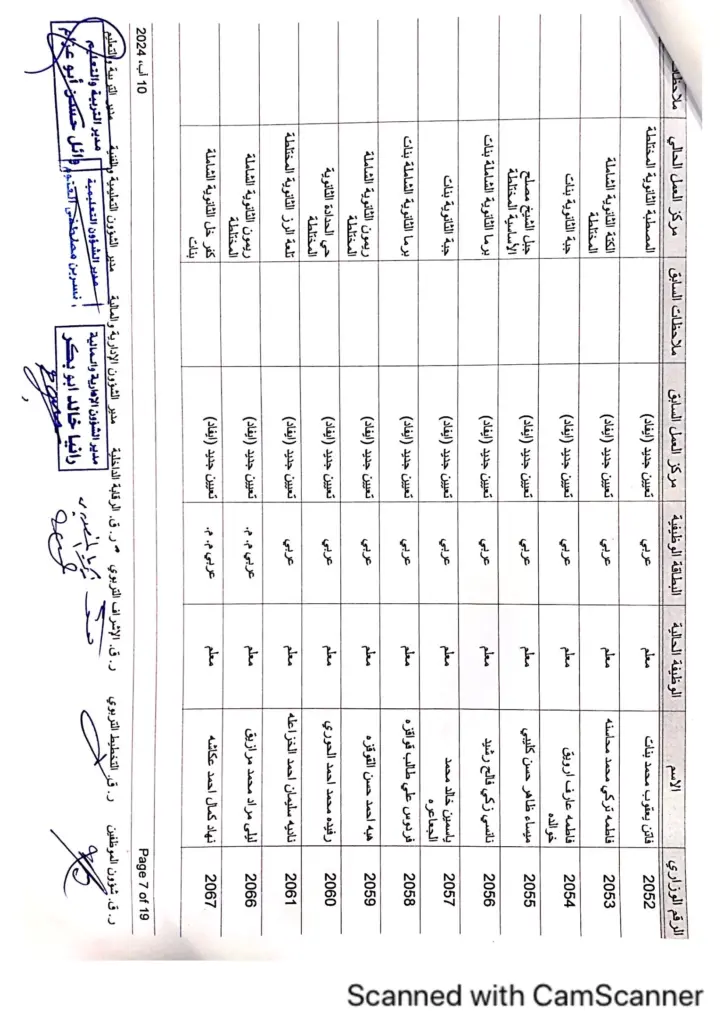 الرقم الوزاري الاسم الوظيفة الحالية البطاقة الوظيفية مركز العمل السابق ملاحظات السابق مركز العمل الحالي ملاحظات
2052 فاتن يعقوب محمد بنات معلم عربي تعيين جديد (ايفاد) المصطبة الثانوية المختلطة
2053 فاطمه تركي محمد محاسنه معلم عربي تعيين جديد (ايفاد) الكتة الثانوية الشاملة
المختلطة
2054 فاطمه عارف ارويق معلم عربي تعيين جديد (ايفاد) جبة الثانوية بنات
خوالده
2055 ميساء ظاهر حسن كليبي معلم عربي تعيين جديد (ايفاد) جبل الشيخ مصلح
الأساسية المختلطة
2056 نانسي زكي فالح رشيد معلم عربي تعيين جديد (ايفاد) برما الثانوية الشاملة بنات
2057 ياسمين خالد محمد معلم عربي تعيين جديد (ايفاد) جبة الثانوية بنات
الجعافره
2058 فردوس علي طالب قواقزه معلم عربي تعيين جديد (ايفاد) برما الثانوية الشاملة بنات
2059 هبه احمد حسن القوقزه معلم عربي تعيين جديد (ايفاد) ريمون الثانوية الشاملة
المختلطة
2060 رفيده محمد احمد الحوري معلم عربي تعيين جديد (ايفاد) حي الحدادة الثانوية
المختلطة
2061 ناديه سليمان احمد الخزاعله معلم عربي تعيين جديد (ايفاد) تلعة الرز الثانوية المختلطة
2066 ليلى مراد محمد مرازيق معلم عربي م. م. تعيين جديد (ايفاد) ريمون الثانوية الشاملة
المختلطة
2067 نهاد كمال احمد عكاشه معلم عربي م. م. تعيين جديد (ايفاد) كفر خل الثانوية الشاملة
بنات
Page 7 of 19
10 آب، 2024
ر. ق. شؤون الموظفين ر. ق. التخطيط التربوي ر. ق. الإشراف التربوي ر. ق. الرقابة الداخلية مدير الشؤون الإدارية والمالية مدير الشؤون التعليمية والفنية مدير التربية والتعليم
مدير الشؤون الإدارية والمالية
رانيا خالد ابو بكر
مدير الشؤون التعليمية
نسرين مصطفى العتوم
مدير التربية والتعليم
وائل حسن أبو عزام
Scanned with CamScanner